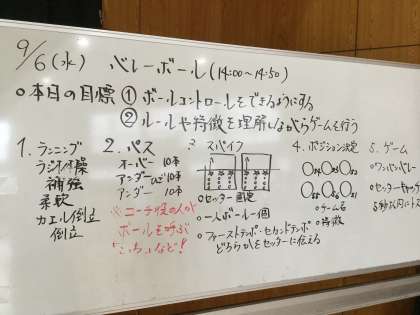 9/6(水) バレーボール(14:00〜14:50)
○本日の目標 ① ボールコントロールをできるようにする
② ルールや特徴を理解しながらゲームを行う
1. ランニング
ラジオ体操
補強
柔軟
カエル倒立
倒立
2. パス
オーバー 10本
アンダー 10本
アンダー 10本
※コーチ役の人が
ボールを呼ぶ
など!
3 スパイク
○セッター固定
○一人ボール一個
○ファーストテンポ・セカンドテンポ
どちらかをセッターに伝える
4. ポジション決定
○ゲーム名
○特徴
5. ゲーム
○ワンバンバレー
○セッターキャッチ